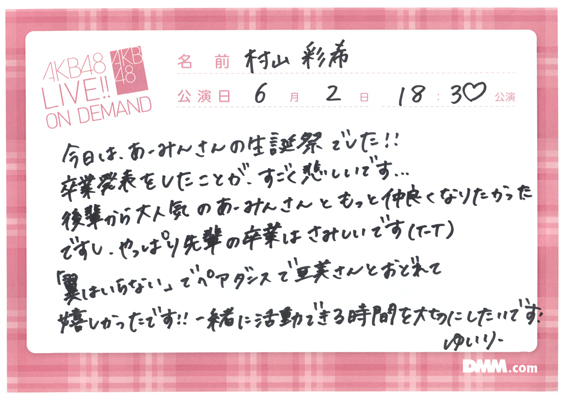 AKB48
LIVE!!
ON DEMAND
AKB
48
名前 村山 彩希
公演日 6月 2日 18:30公演
今日は、あーみんさんの生誕祭でした!!
卒業発表をしたことが、すごく悲しいです...
後輩から大人気のあーみんさんともっと仲良くなりたかった
ですし、やっぱり先輩の卒業はさみしいです(T-T)
「翼はいらない」でペアダンスで亜美さんとおどれて
嬉しかったです!! 一緒に活動できる時間を大切にしたいです!
ゆいりー
DMM.com